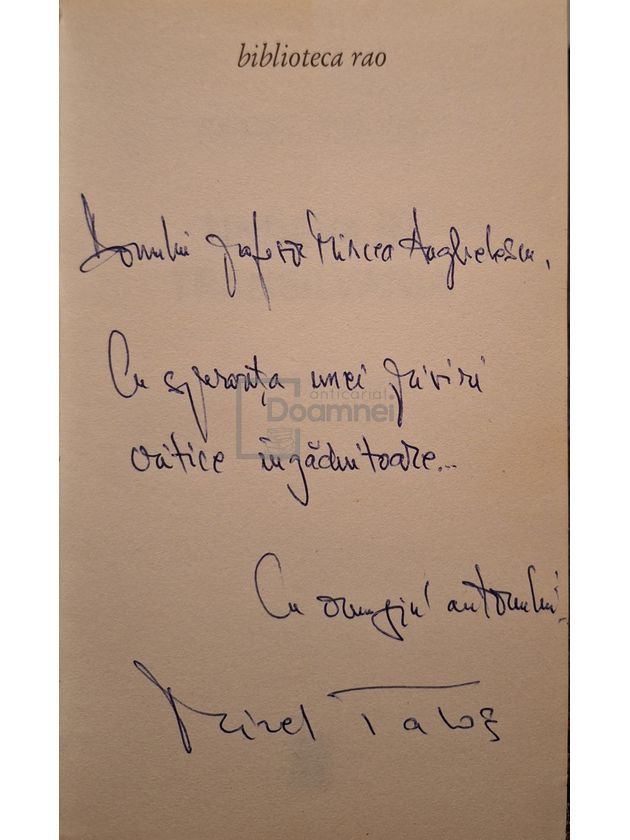 biblioteca rao
Domnului profesor Mircea Anghelescu,
Cu speranța unei priviri
anticariat
Doamnei
critice îngăduitoare...
Cu omagiul autorului
Mirel Taloș